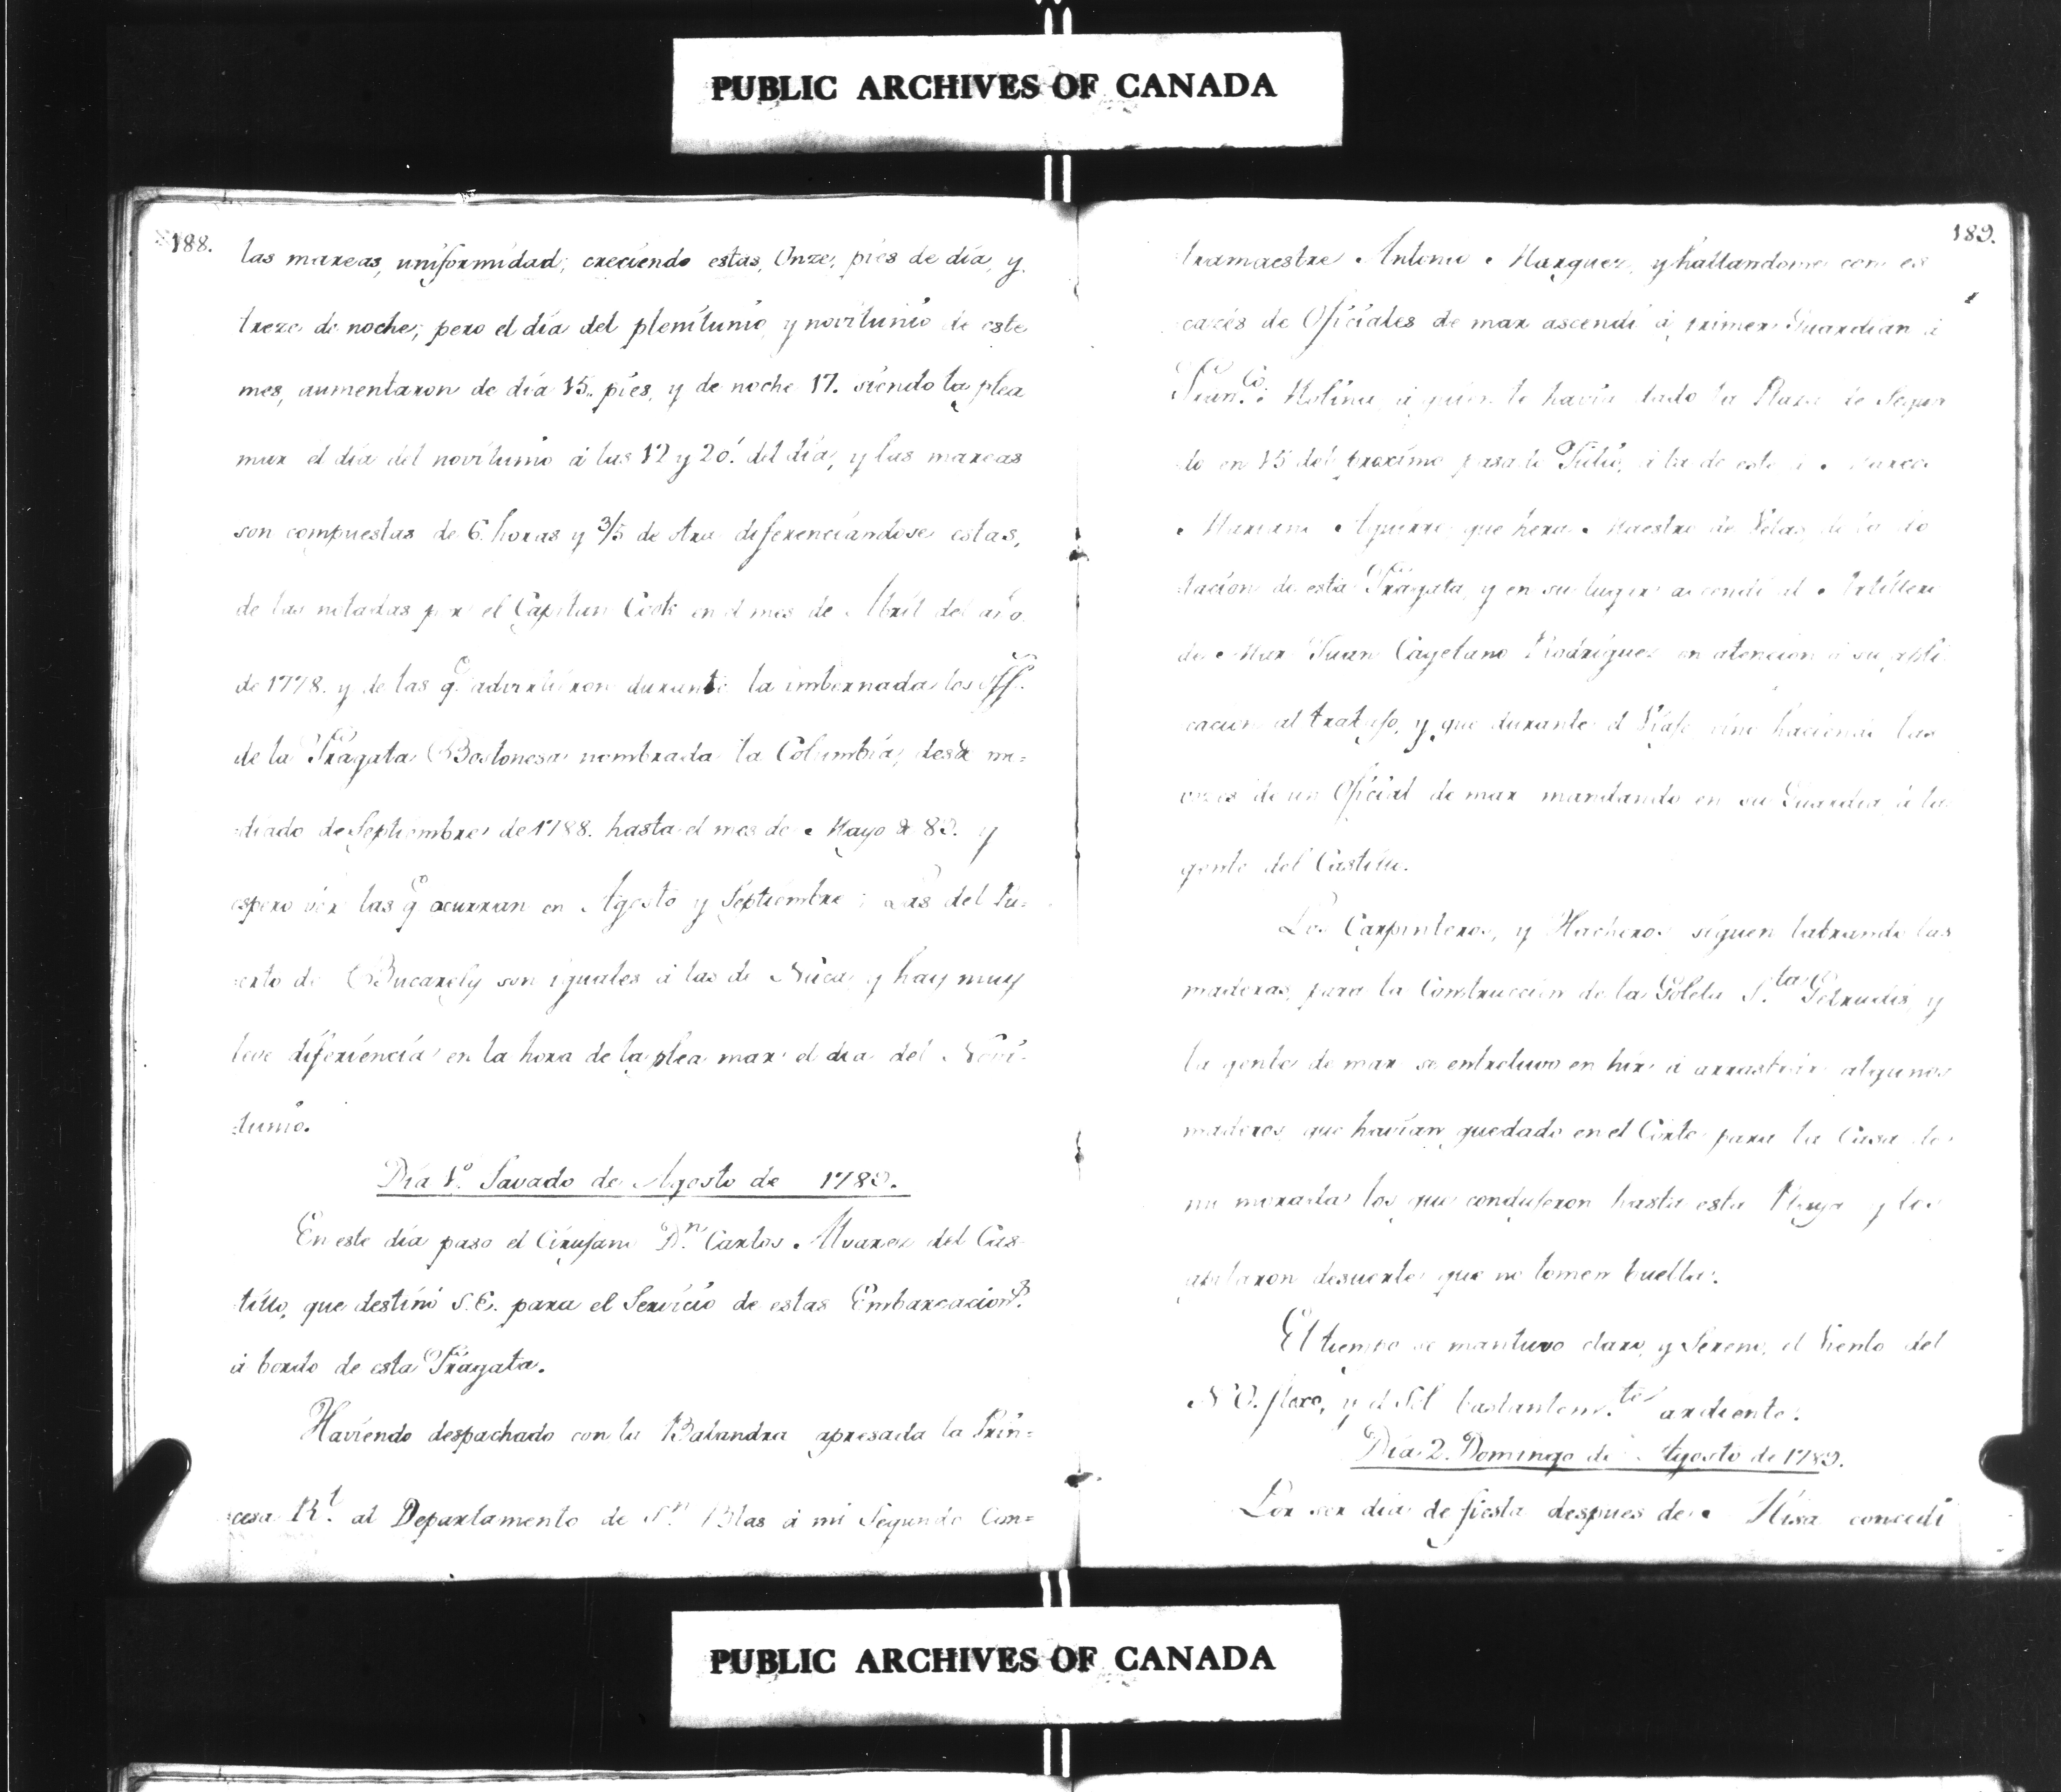 PUBLIC ARCHIVES OF CANADA
188.
las mareas, uniformidad, creciendo estas, Onze, pies de día, y
treze de noche; pero el día del plenilunio, y novilunio de este
mes, aumentaron de día 15. pies, y de noche 17. siendo la plea
mar el día del novilunio á las 12 y 20'. del día, y las mareas
son compuestas de 6 horas y 3/5 de otra diferenciandose estas,
de las notadas por el Capitan Cook en el mes de Abril del año
de 1778. y de las q.e advirtieron durante la imbernada los off.s
de la Fragata Bostonesa nombrada la Columbia, desde me=
diado de Septiembre de 1788. hasta el mes de Mayo de 89. y
espero ver las q.e ocurran en Agosto y Septiembre: Las del Pu=
erto de Bucarely son iguales á las de Nuca, y hay muy
leve diferiencia en la hora de la plea mar el dia del Novi=
lunio.
Día 1.º Savado de Agosto de 1789.
En este día paso el Cirujano D.n Carlos Alvarez del Cas
tillo, que destinó S.E. para el Servicio de estas Embarcacion.s
á bordo de esta Fragata.
Haviendo despachado con la Balandra apresada la Prin=
cesa R.l al Departamento de S.n Blas á mi Segundo Con=
189.
tramaestre Antonio Marquez, y hallandome con es
cacés de Oficiales de mar ascendi á primer Guardian á
Fran.co Molina, á quien le havia dado la Plaza de Segun
do en 15 del proximo pasado Julio, á la de este á
Mariano Aguirre, que hera Maestro de Velas, de la do
tacion de esta Fragata, y en su lugar ascendi al Artillero
de Mar Juan Cayetano Rodriguez en atencion á su apli
cacion al trabajo, y que durante el Viaje vino haciendo las
vezes de un Oficial de mar mandando en su Guardia á la
gente del Castillo.
Los Carpinteros, y Hacheros siguen labrando las
maderas, para la Construccion de la Goleta S.ta Getrudis, y
la gente de mar se entretuvo en hir á arrastrar algunos
maderos, que havian quedado en el Corte para la Casa de
mi morada los que condujeron hasta esta Playa y los
apilaron desuerte que no tomen buelta.
El tiempo se mantuvo claro, y Sereno, el Viento del
N O. floxo, y el Sol bastantem.te ardiente.
Día 2. Domingo de Agosto de 1789.
Por ser dia de fiesta despues de Misa concedi
PUBLIC ARCHIVES OF CANADA